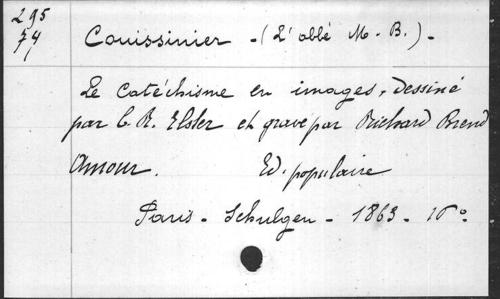 295
74
Couissinier - (L'abbé M. B.) -
Le Catéchisme en images, Dessiné
par C. R. Elster et gravé par Richard Brend
Amour. Ed. populaire
Paris - Schulgen - 1863 - 16º